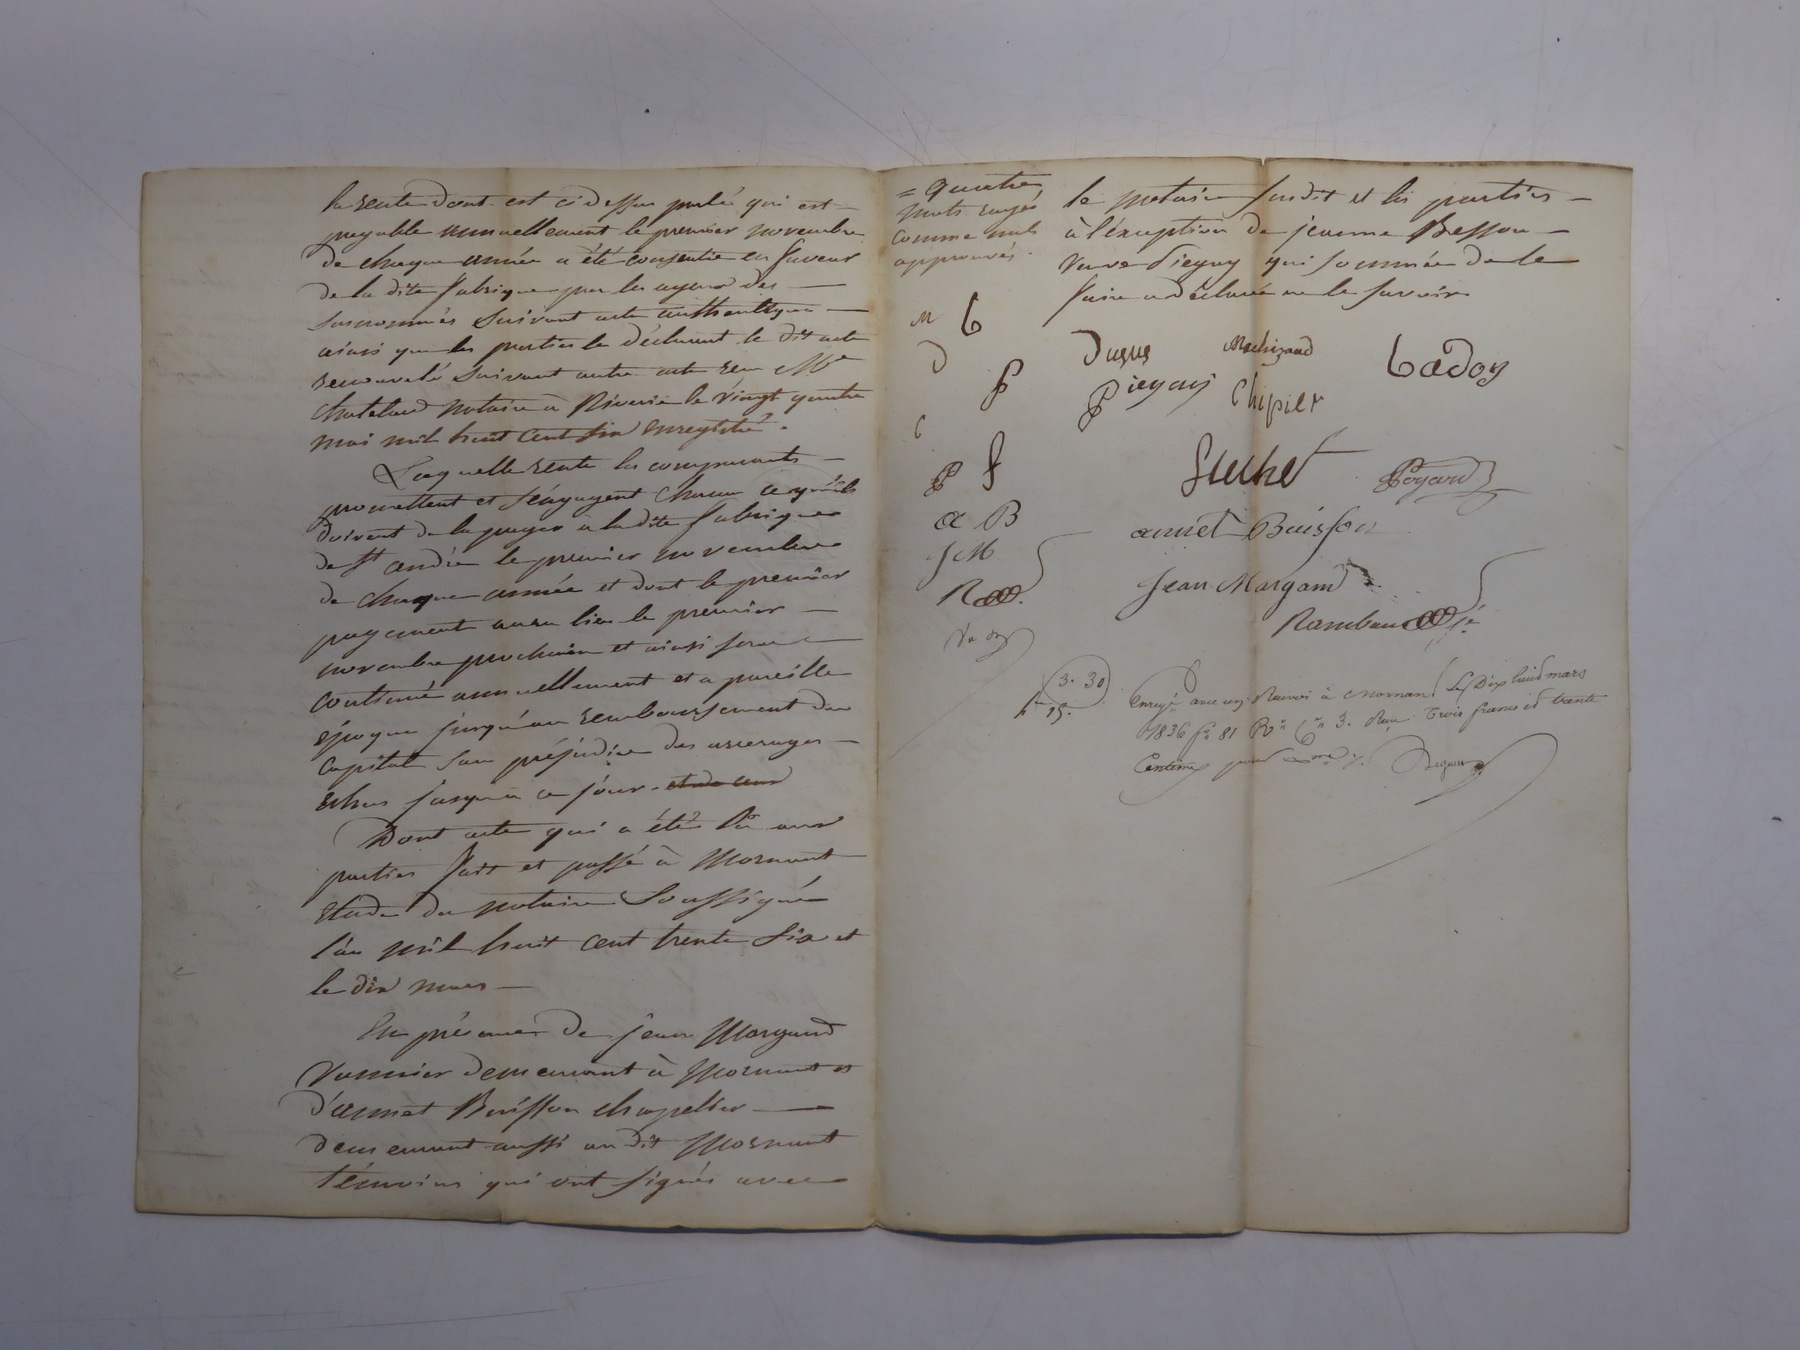 la rente dont est ci dessus parlé qui est
payable annuellement le premier novembre
de chaque année a été consentie en faveur
de la dite fabrique par les ayeux des
susnommés suivant acte authentique
ainsi que les parties le déclarent le dit acte
renouvelé suivant autre acte reçu Me
Chatelard notaire à Riverie le vingt quatre
mai mil huit cent six enregistré.
Laquelle rente les comparants
promettent et s'engagent chacun ce qu'ils
doivent de la payer a la dite fabrique
de St andré le premier novembre
de chaque année et dont le premier
payement aura lieu le premier
novembre prochain et ainsi sera
continué annuellement et a pareille
époque jusqu'au remboursement du
capital sans préjudice des arrerages
echus jusqu'a ce jour.
Dont acte qui a été lu aux
parties fait et passé à Mornant
Etude du notaire soussigné
l'an mil huit cent trente six et
le dix mars
En présence de Jean Margand
vannier demeurant à Mornant et
d'annet Buisson chapelier
demeurant aussi au dit Mornant
témoins qui ont signés avec
= quatre
mots rayés
comme nuls
approuvés.
le notaire susdit et les parties
à l'exception de jeanne Besson
veuve Pieyay qui sommée de le
faire a déclaré ne le savoir
M B
D
P
C
P f
a B
J M
R
Duque
Badoy
Chipier
Suchet
Goyard
annet Buisson
Jean Margand
Rambaud
3. 30
Enregé avec un Renvoi à Mornant Le Dix huit mars
1836 f° 81 Ro Cn 3. Reçu Trois francs et trente
Centimes